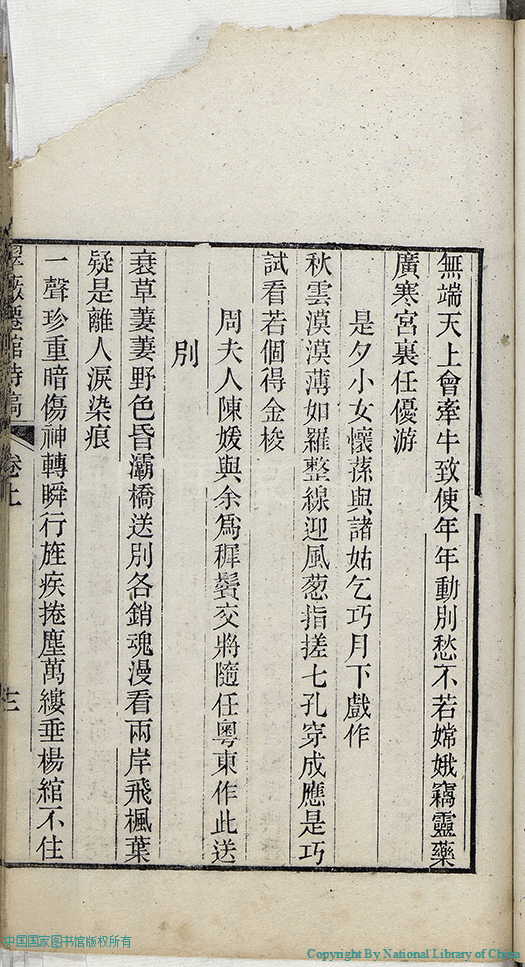 無端天上會牽牛致使年年動別愁不若嫦娥竊靈藥
廣寒宮裏任優游
是夕小女懷蓀與諸姑乞巧月下戲作
秋雲漠漠薄如羅整線迎風葱指搓七孔穿成應是巧
試看若個得金梭
周夫人陳媛與余爲穉鬟交將隨任粵東作此送
別
衰草萋萋野色昏灞橋送別各銷魂漫看兩岸飛楓葉
疑是離人淚染痕
一聲珍重暗傷神轉瞬行旌疾捲塵萬縷垂楊綰不住
館詩稿
卷上
十三
中国国家图书馆版权所有
Copyright By National Library of China